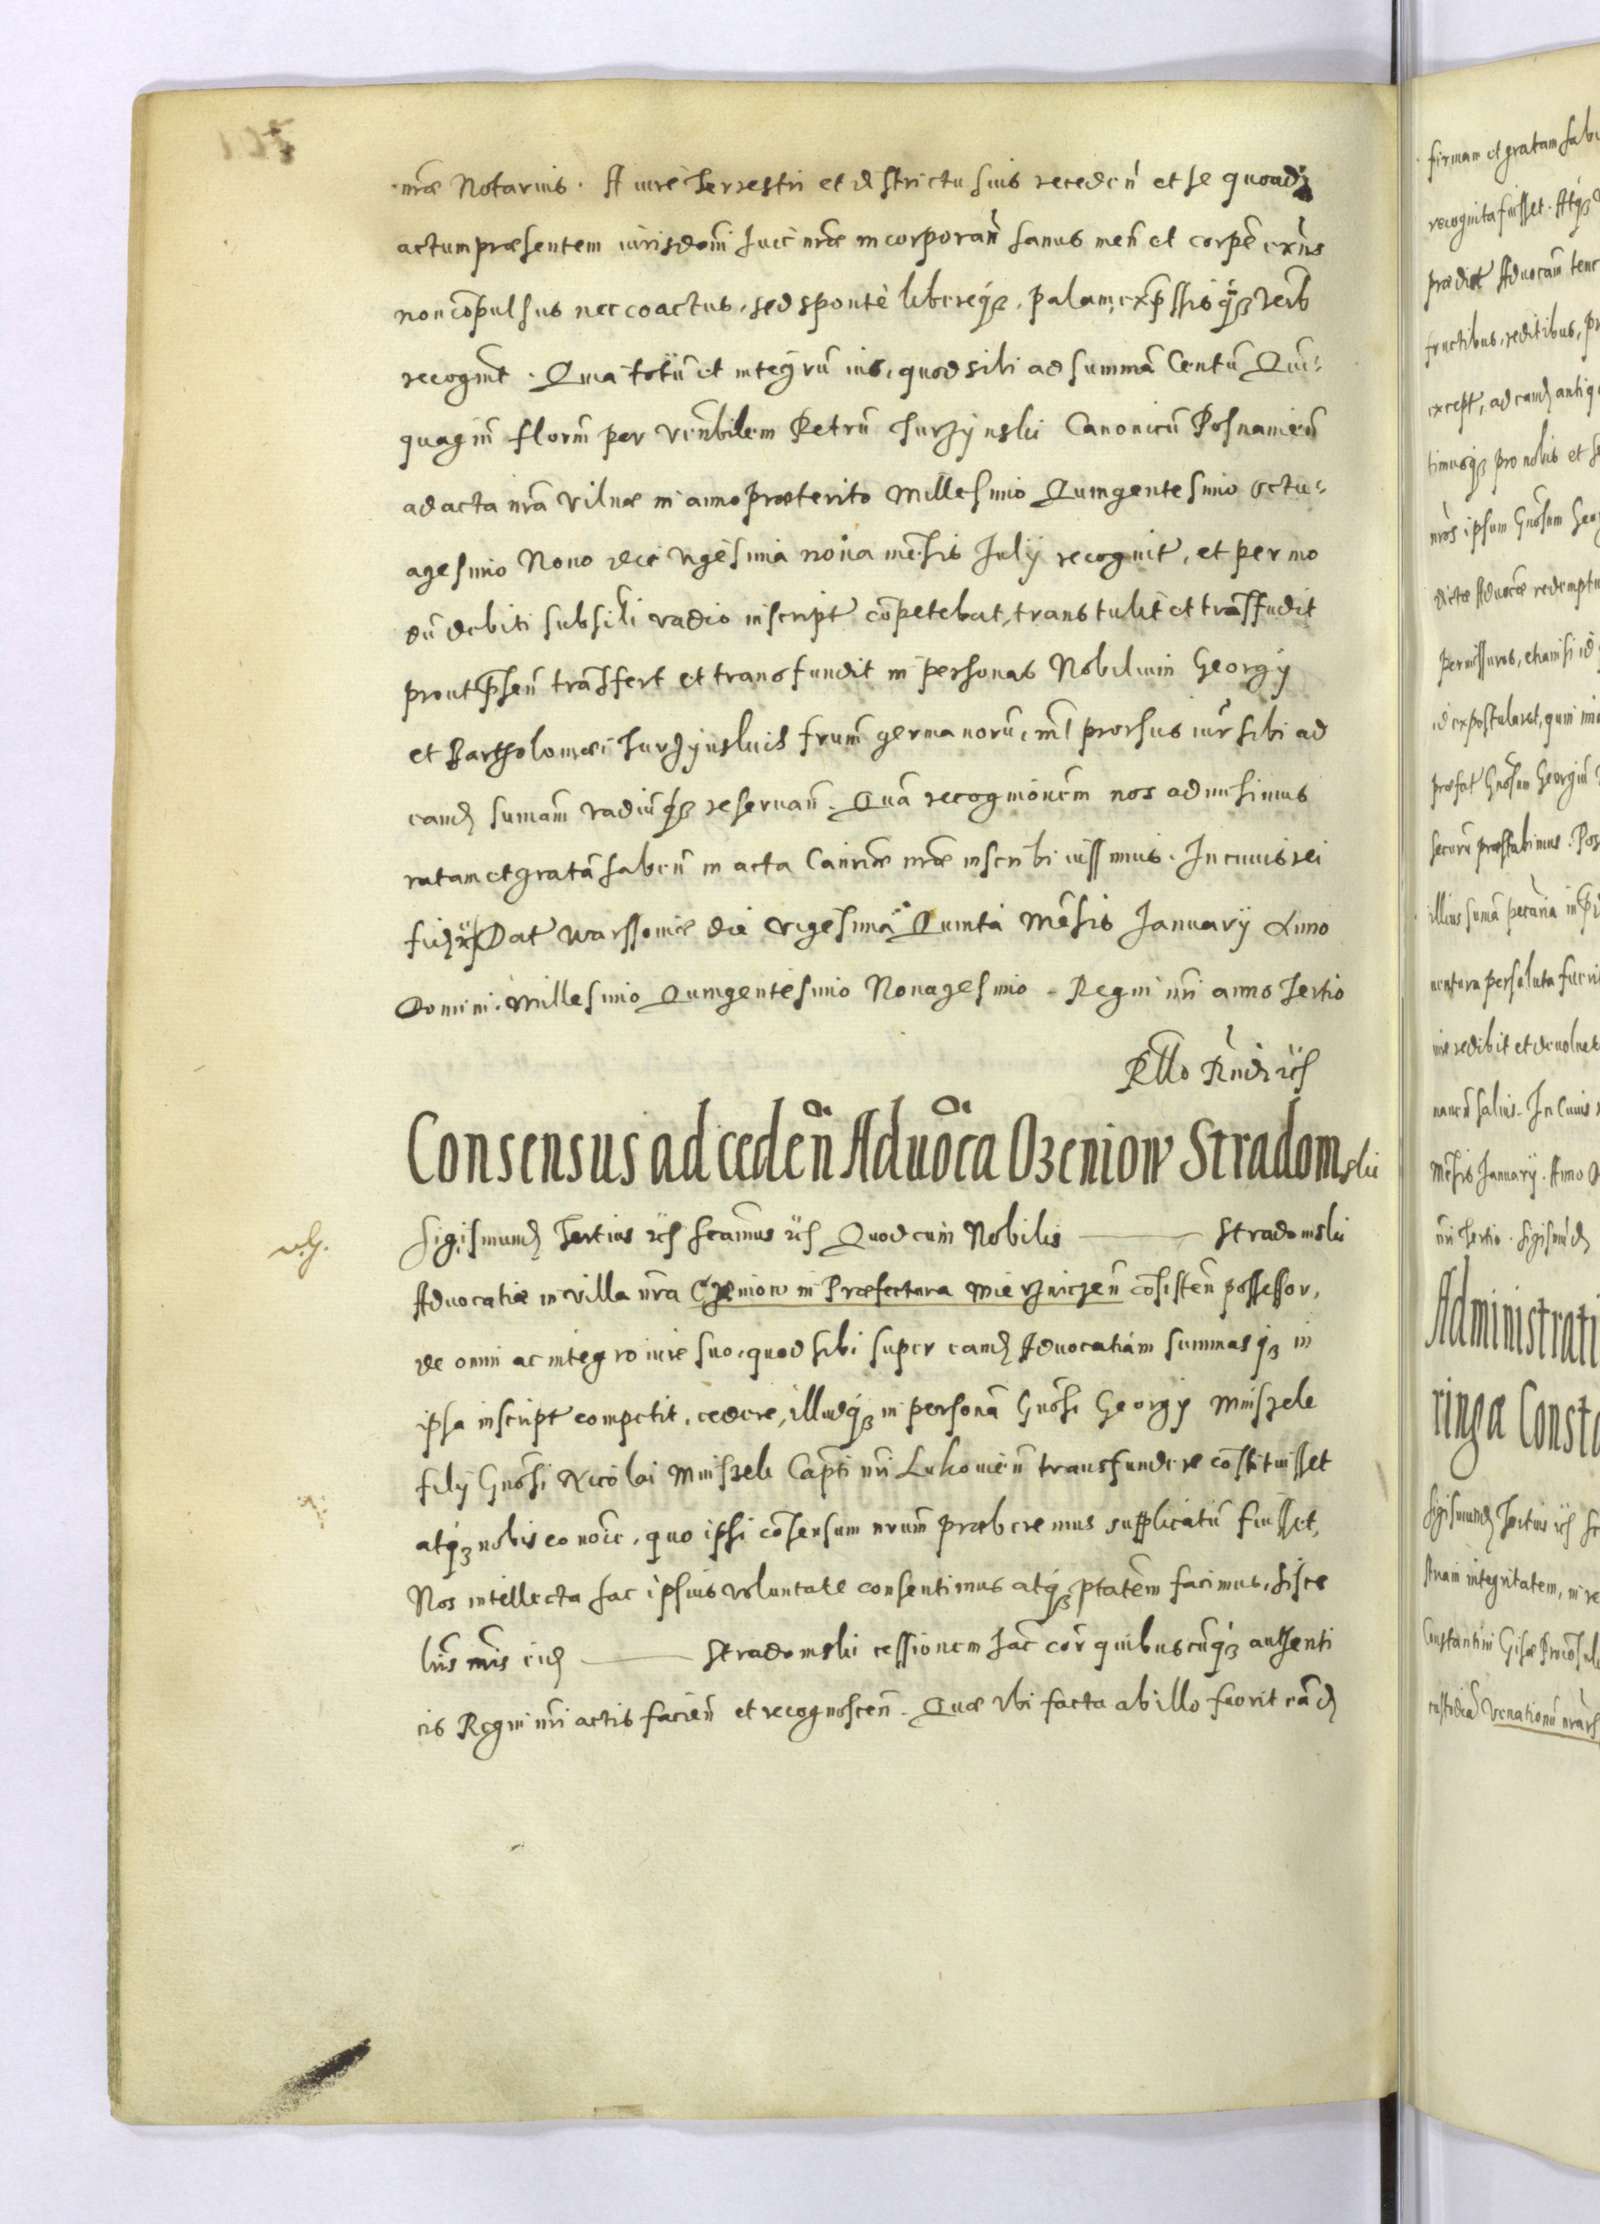 nrae Notarius. A iure Terrestri et districtu suis receden̄ et se quoad
actum praesentem iurisdoni huic nrae incorporan̄ sanus men̄ et corpe exn̄s
non cōpulsus nec coactus, sed sponte libereq3, palam, exp̄ssisq3 verb
recogint. Quia totū et integrū ius, quod sibi ad summā Centū Quin-
quagin̄ florn̄ per Venbilem Petrū Turzynski Canonicū Posnanien̄
ad acta nrā Vilnae in anno praeterito Millesimo Quingentesimo Octu-
agesimo Nono die vigesima nona mēsis Julij recognit, et per mo
dū debiti subsili vadio inscript cōpetebat, transtulit et trāsfudit
prout p̄sen̄ trāsfert et transfundit in personas Nobilium Georgij
et Bartholomaei Turzynskich frum̄ germanorū, nīl prorsus iur̄ sibi ad
eand̄ sumam̄ vadiūq3 reseruan̄. Quā recognionem nos admisimus
ratam et gratā haben̄ in acta Can̄riae nrae inscribi iussimus. In cuius rei
fid̄ Dat Warssouiae die vigesima Quinta Mēsis Januarij Anno
Domini Millesimo Quingentesimo Nonagesimo. Regni nri anno Tertio
Rllo Rndi
Consensus ad ceden̄ Aduoca Ozeniow Stradomski
Sigismund̄ Tertius Scamus Quod cum Nobilis ——— Stradomski
Aduocatiae in villa nra Ozeniow in Praefectura Mierzwiczen̄ cōsisten̄ possessor,
de omni ac integro iure suo, quod sibi super eand̄ Aduocatiam summasq3 in
ipsa inscript competit, cedere, illudq3 in personā Gn̄osi Georgij Mniszek
filij Gn̄osi Nicolai Mniszek Capti nri Lukouien̄ transfundere cōstituisset
atq3 nobis eo noīe, quo ipsi cōsensum nrum̄ praeberemus supplicatū fuisset,
Nos intellecta hac ipsius voluntate consentimus atq3 ptatem facimus, hisce
lrīs nrīs eid̄ ——— Stradomski cessionem hāc cor̄ quibuscūq3 authenti
cis Regni nri actis facien̄ et recognoscen̄. Quae vbi facta ab illo fuerit eād̄
firmam et gratam hab
recognita fuisset. Atq3
praedict Aduocam̄ tene
fructibus, reditibus, pr
except, ad eand̄ antiq
timusq3 pro nobis et s
nros ipsum Gn̄osum Geor
dictae Aduocae redemptu
permissuros, etiamsi id
id expostularet, quin imo
praefat Gn̄osum Georgiū
securū praestabimus. Pos
illius sumā pecaria in
nentura persoluta fueri
iure redibit et deuoluet
nanen̄ saluis. In Cuius
Mēsis Januarij. Anno D
nri Tertio. Sigismūd̄
Administrati
ringa Consta
Sigismund̄ Tertius Sc
suam integritatem, in re
Constantini Gisae Procōsul
custodiā Venationū nrar̄